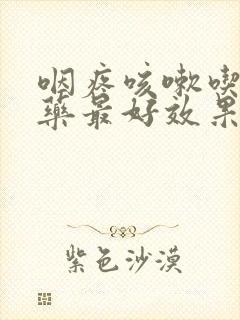 咽疼咳嗽喫
藥最好效果
紫色沙漠